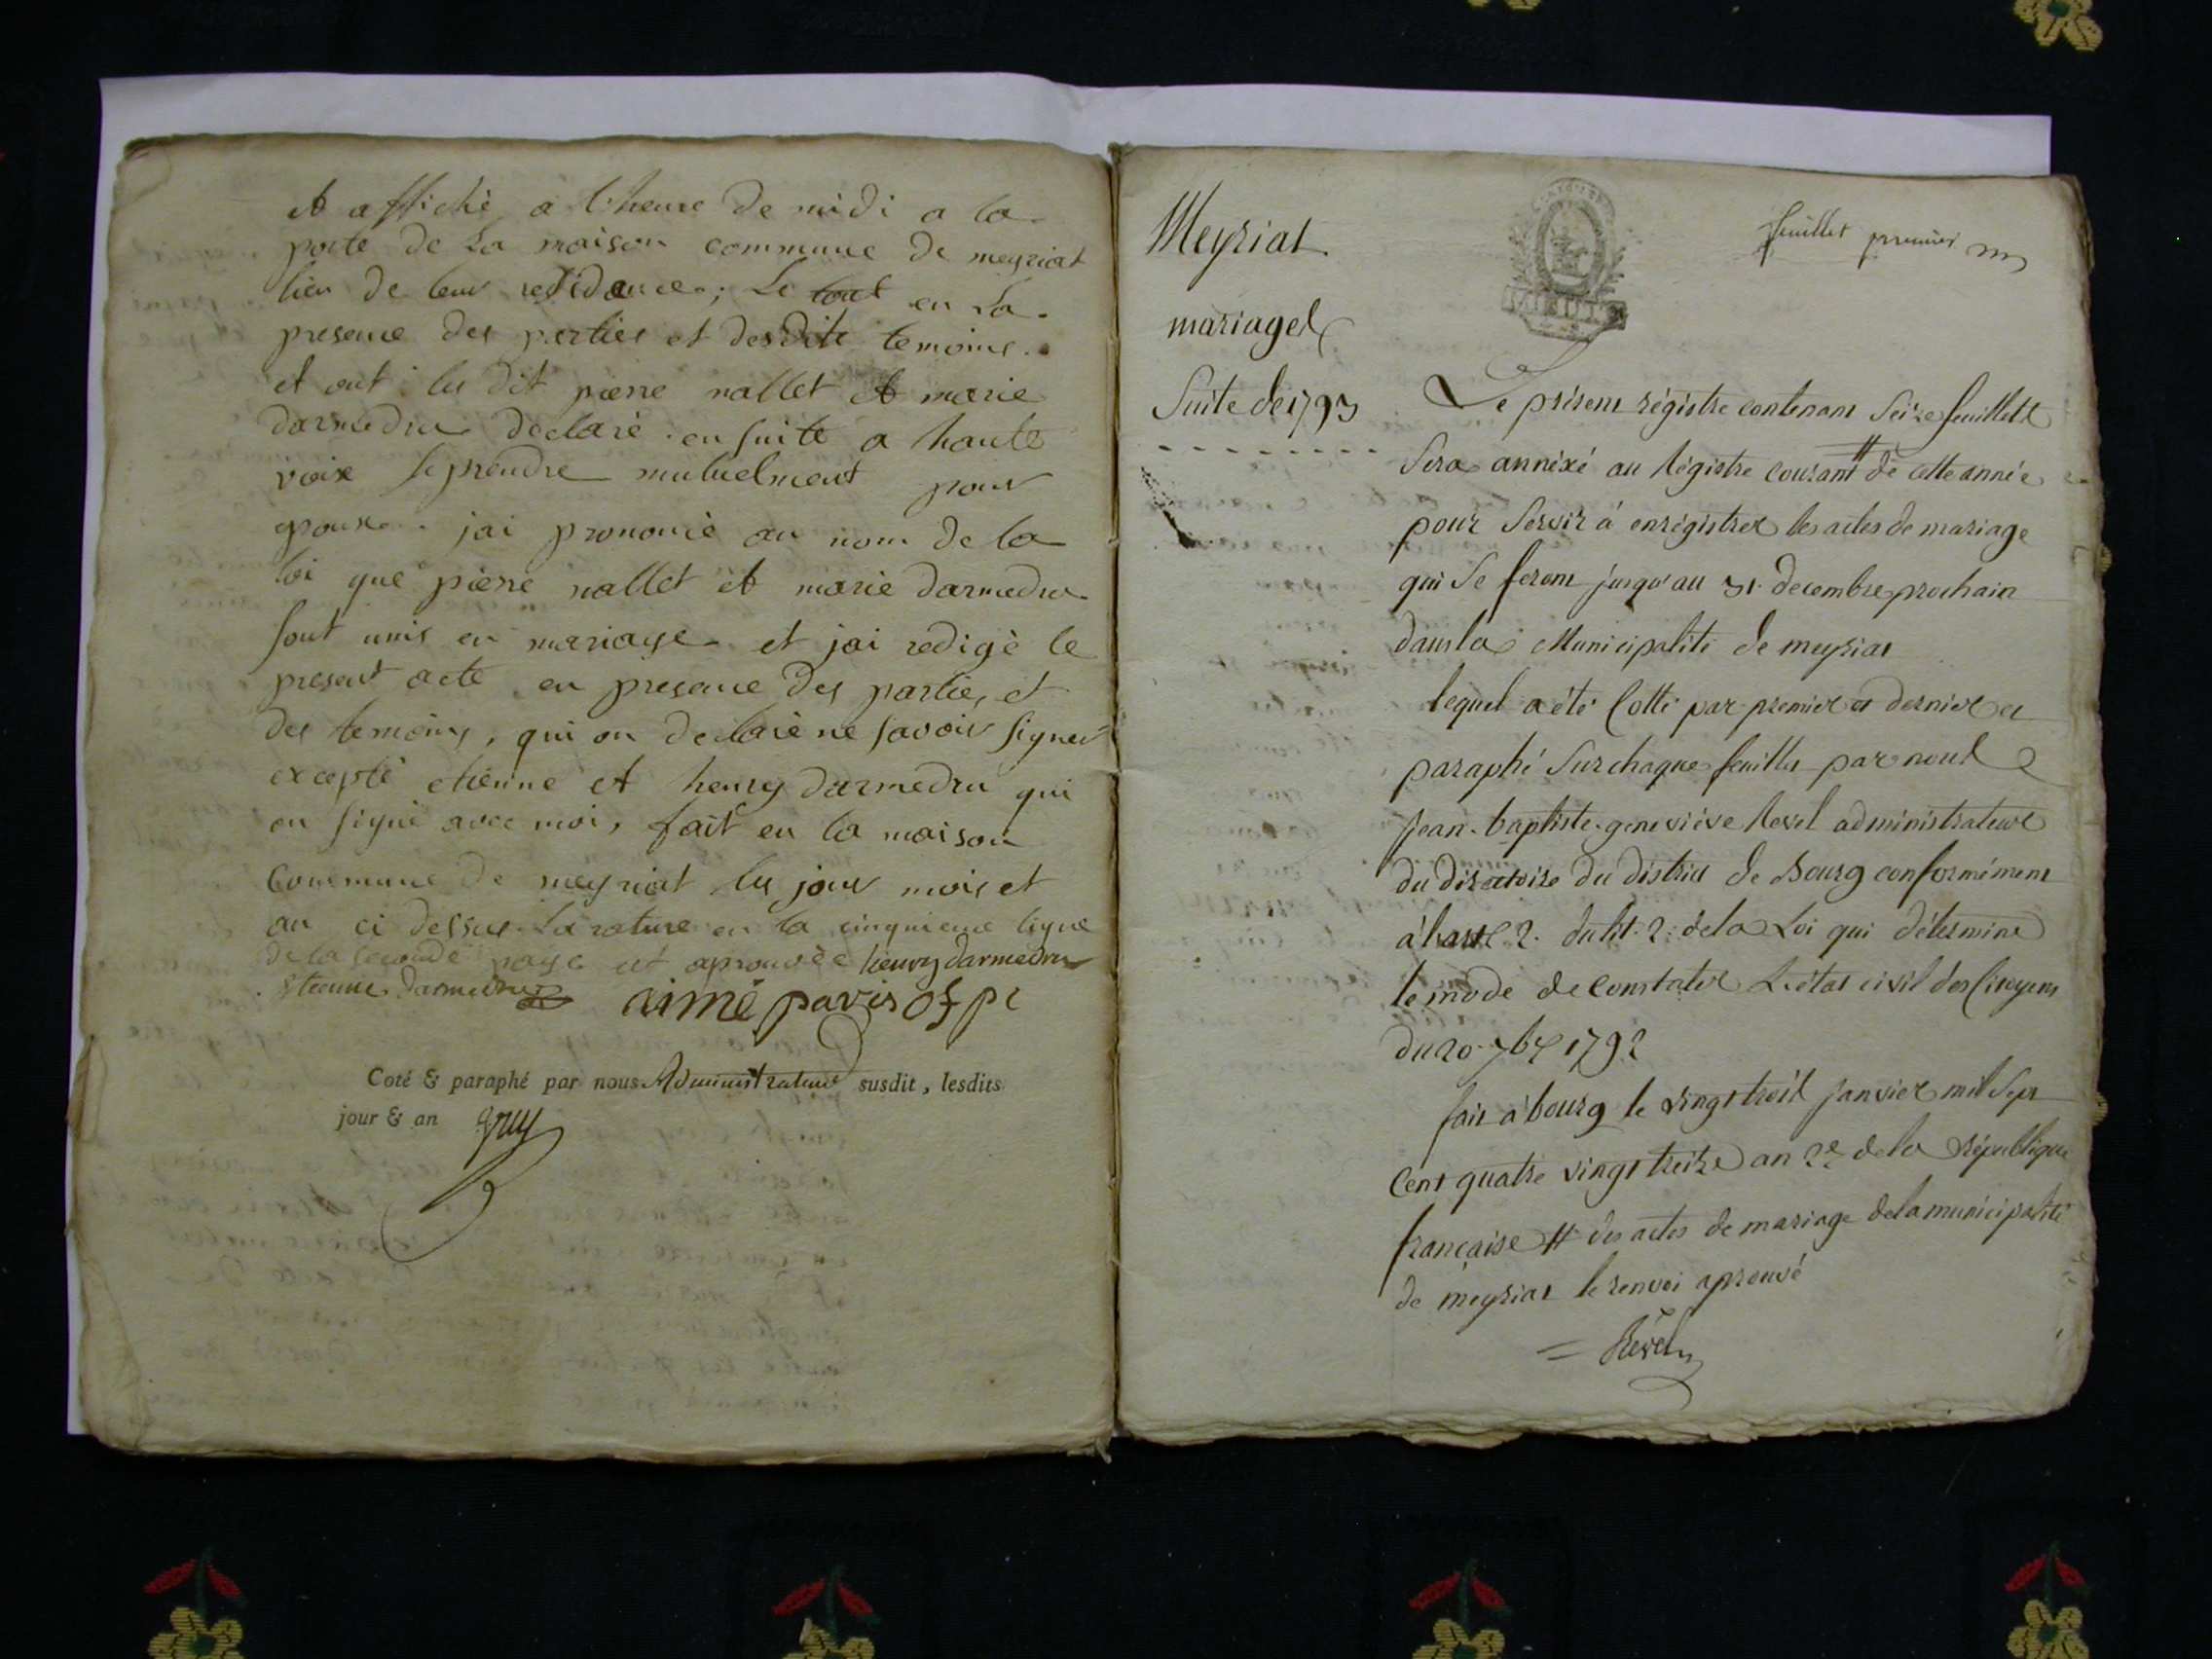 et affiché a l'heure de midi a la
porte de la maison commune de meyriat
lieu de leur residance; Le tout en la
presence des parties et desdite temoins.
et ont les dit pierre nallet et marie
darmedru declaré en suite a haute
voix se prendre mutuelment pour
epoux. jai prononcé au nom de la
loi que pierre nallet et marie darmedru
sont unis en mariage et jai redigé le
present acte en presence des partie, et
des temoins, qui on declaré ne savoir signer
excepté etienne et henry darmedru qui
on signé avec moi, fait en la maison
Commune de meyriat les jour mois et
an ci dessus La rature en la cinquieme ligne
de la seconde page est aprouvée henry darmedru
etienne darmedru aimé pavis of pc
Coté & paraphé par nous Administrateur susdit, lesdits
jour & an
Meyriat
feuillet premier
mariages
Suite de 1793
MINUTE
Le présent régistre contenant Seize feuillets
Sera annéxé au Régistre courant # de cette année
pour Servir á enrégistrer les actes de mariage
qui Se feront jusqu'au 31. decembre prochain
dans la Municipalité de meyriat
lequel a été Cotté par premier et dernier et
paraphé Sur chaque feuillet par nous
Jean-baptiste-geneviéve Revel administrateur
du directoire du district de Bourg conformément
à l'art 2. du tit. 2. de la Loi qui détermine
le mode de Constater L'état civil des Citoyens
du 20. 7bre 1792
fait á bourg le vingt trois janvier mil Sept
Cent quatre vingt treize an 2e de la république
française # des actes de mariage de la municipalité
de meyriat le renvoi aprouvé
= Rével